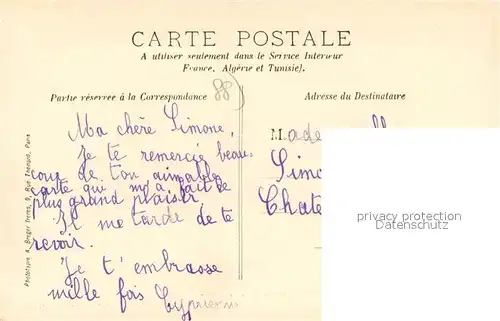 CARTE POSTALE
A utiliser seulement dans le Service Intérieur
France, Algérie et Tunisie).
88
Partie réservée à la Correspondance
Adresse du Destinataire
Ma chère Simone,
Je te remercie beau-
coup de ton aimable
carte qui m'a fait le
plus grand plaisir.
Il me tarde de te
revoir.
Je t'embrasse
mille fois
M. ade
Simo
Chate
privacy protection
Datenschutz
Phototypie A. Berger frères, 9, Rue Thénard, Paris